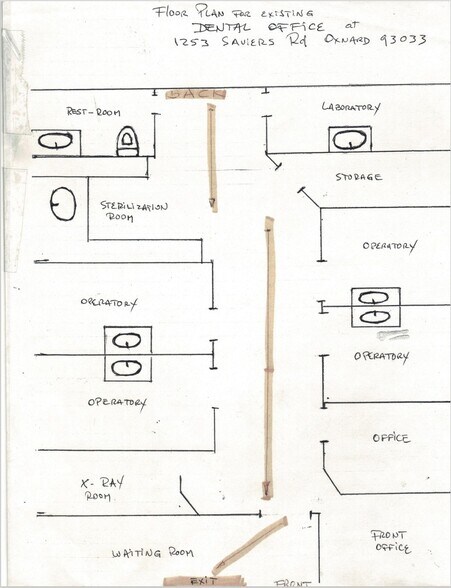 FLOOR PLAN FOR EXISTING
DENTAL OFFICE at
1253 SAVIERS Rd OXNARD 93033
BACK
REST-ROOM
LABORATORY
STORAGE
STERILIZATION
ROOM
OPERATORY
OPERATORY
OPERATORY
OPERATORY
OFFICE
X-RAY
ROOM
FRONT
OFFICE
WAITING ROOM
EXIT
FRONT